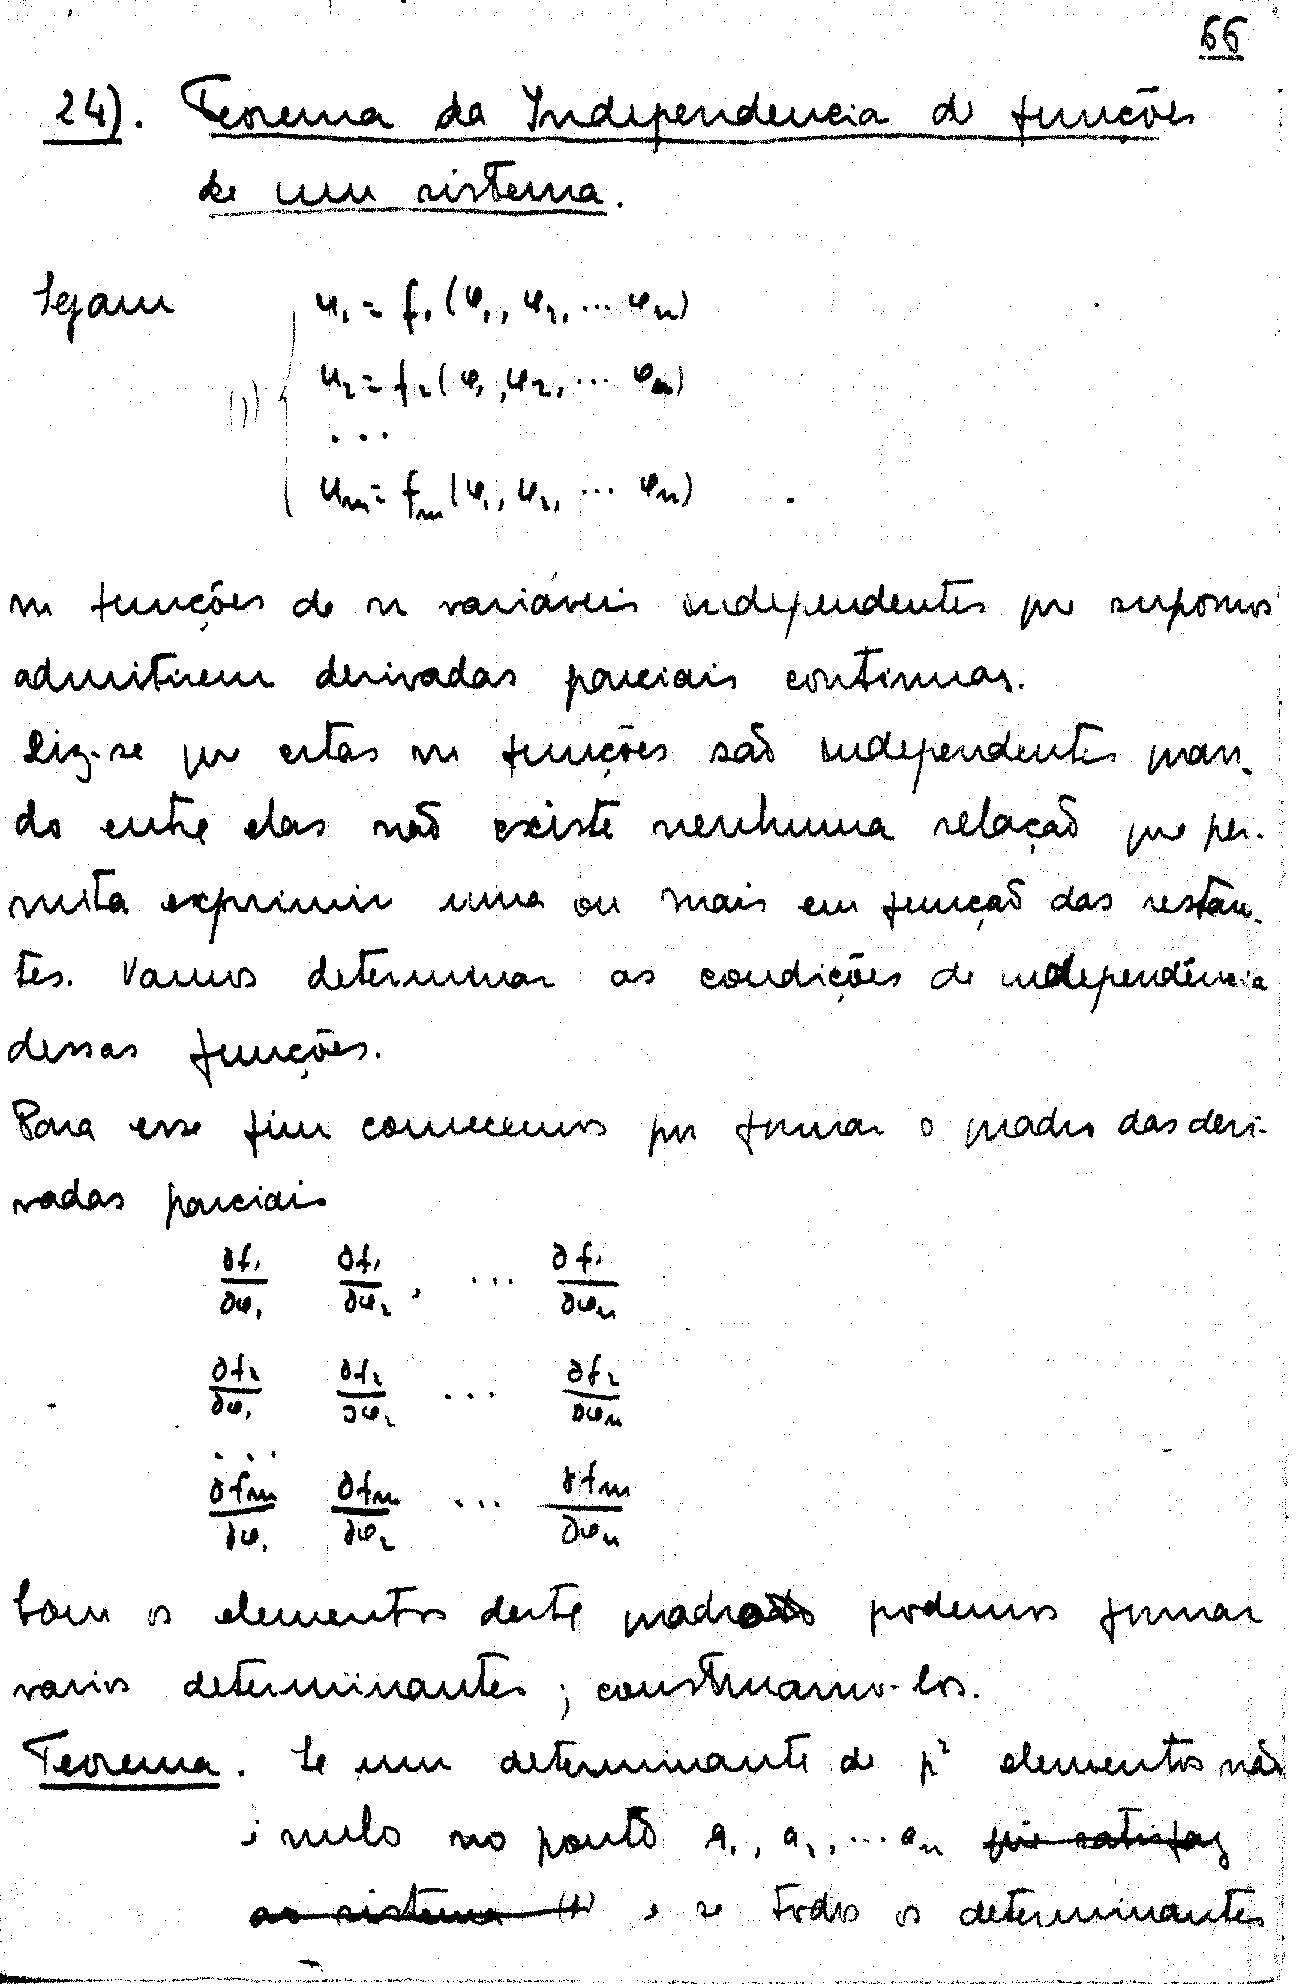 66
24). Teorema da Independencia de funções
de um sistema.
Sejam u₁ = f₁ (φ₁, φ₂, ... φn)
1) u₂ = f₂ (φ₁, φ₂, ... φn)
...
um = fm (φ₁, φ₂, ... φn)
m funções de n variáveis independentes que supomos
admitirem derivadas parciais continuas.
Diz-se que estas m funções são independentes quan-
do entre elas não existe nenhuma relação que per-
mita exprimir uma ou mais em função das restan-
tes. Vamos determinar as condições de independência
dessas funções.
Para esse fim comecemos por formar o quadro das deri-
vadas parciais
∂f₁/∂φ₁ ∂f₁/∂φ₂, ... ∂f₁/∂φn
∂f₂/∂φ₁ ∂f₂/∂φ₂ ... ∂f₂/∂φn
...
∂fm/∂φ₁ ∂fm/∂φ₂ ... ∂fm/∂φn
Com os elementos deste quadro podemos formar
varios determinantes; construamo-los.
Teorema. Se um determinante de p² elementos não
é nulo no ponto a₁, a₂, ... an que satisfaz
ao sistema (1), e se todos os determinantes